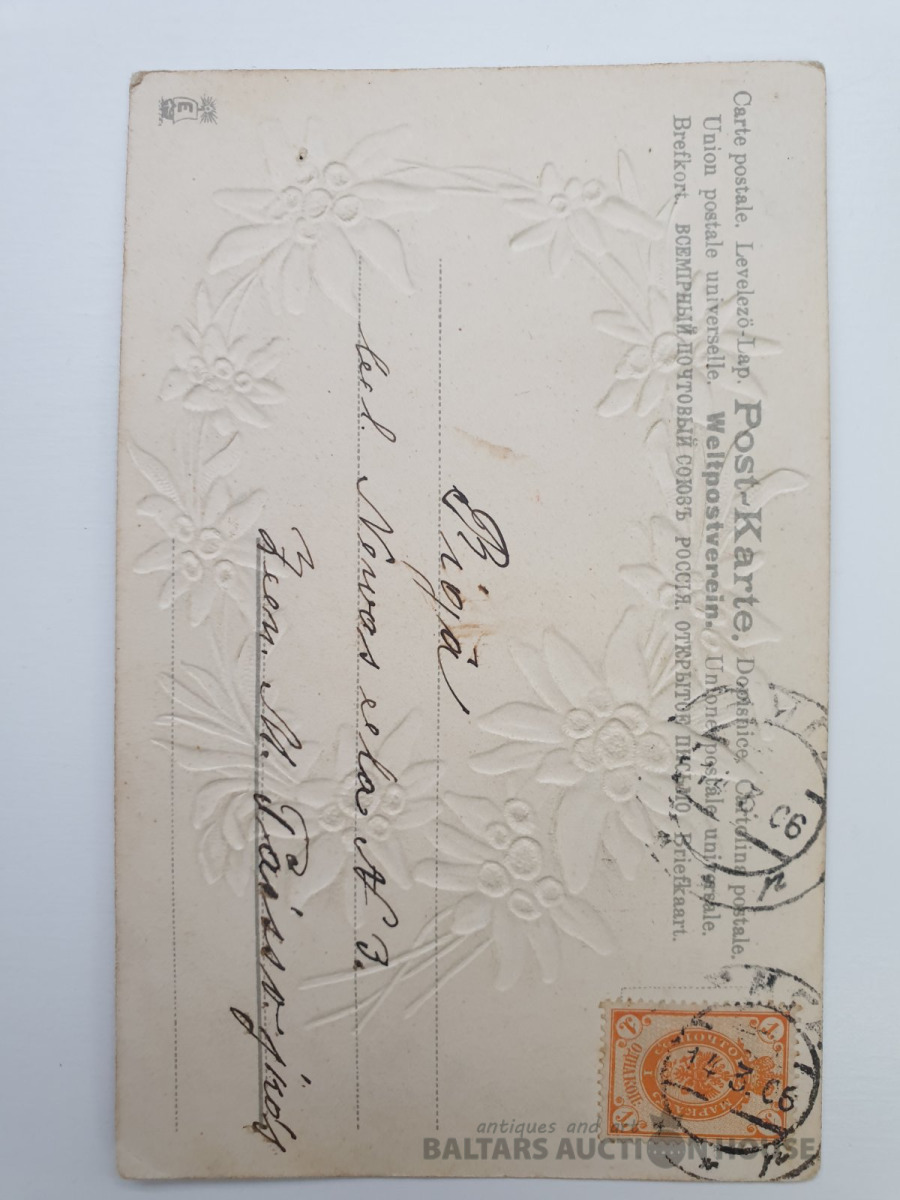 Carte postale. Levelezö-Lap. Post-Karte. Dopisnice. Cartolina postale.
Union postale universelle. Weltpostverein. Unione postale universale.
Brefkort. ВСЕМІРНЫЙ ПОЧТОВЫЙ СОЮЗЪ РОССІЯ. ОТКРЫТОЕ ПИСЬМО. Briefkaart.
Rigā
leel. Newas eela N 3.
M.
E
14 3. 06
06
ПОЧТОВ
МАРКА
ОДНА КОП.
1
antiques and art
BALTARS AUCTION HOUSE